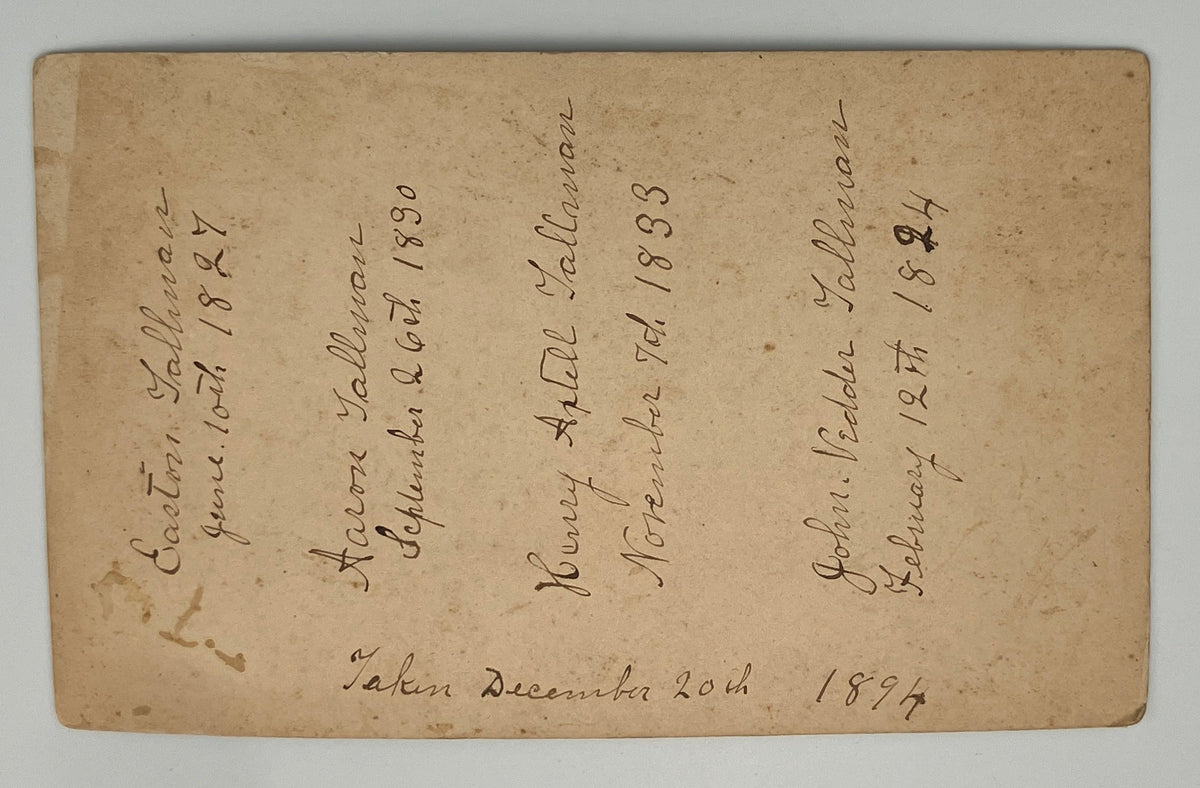 Easton Tallman
June. 10th 1827
Aaron Tallman
September 26th 1830
Henry Axtell Tallman
November 7th 1833
John. Vedder Tallman
February 12th 1824
Taken December 20th 1894